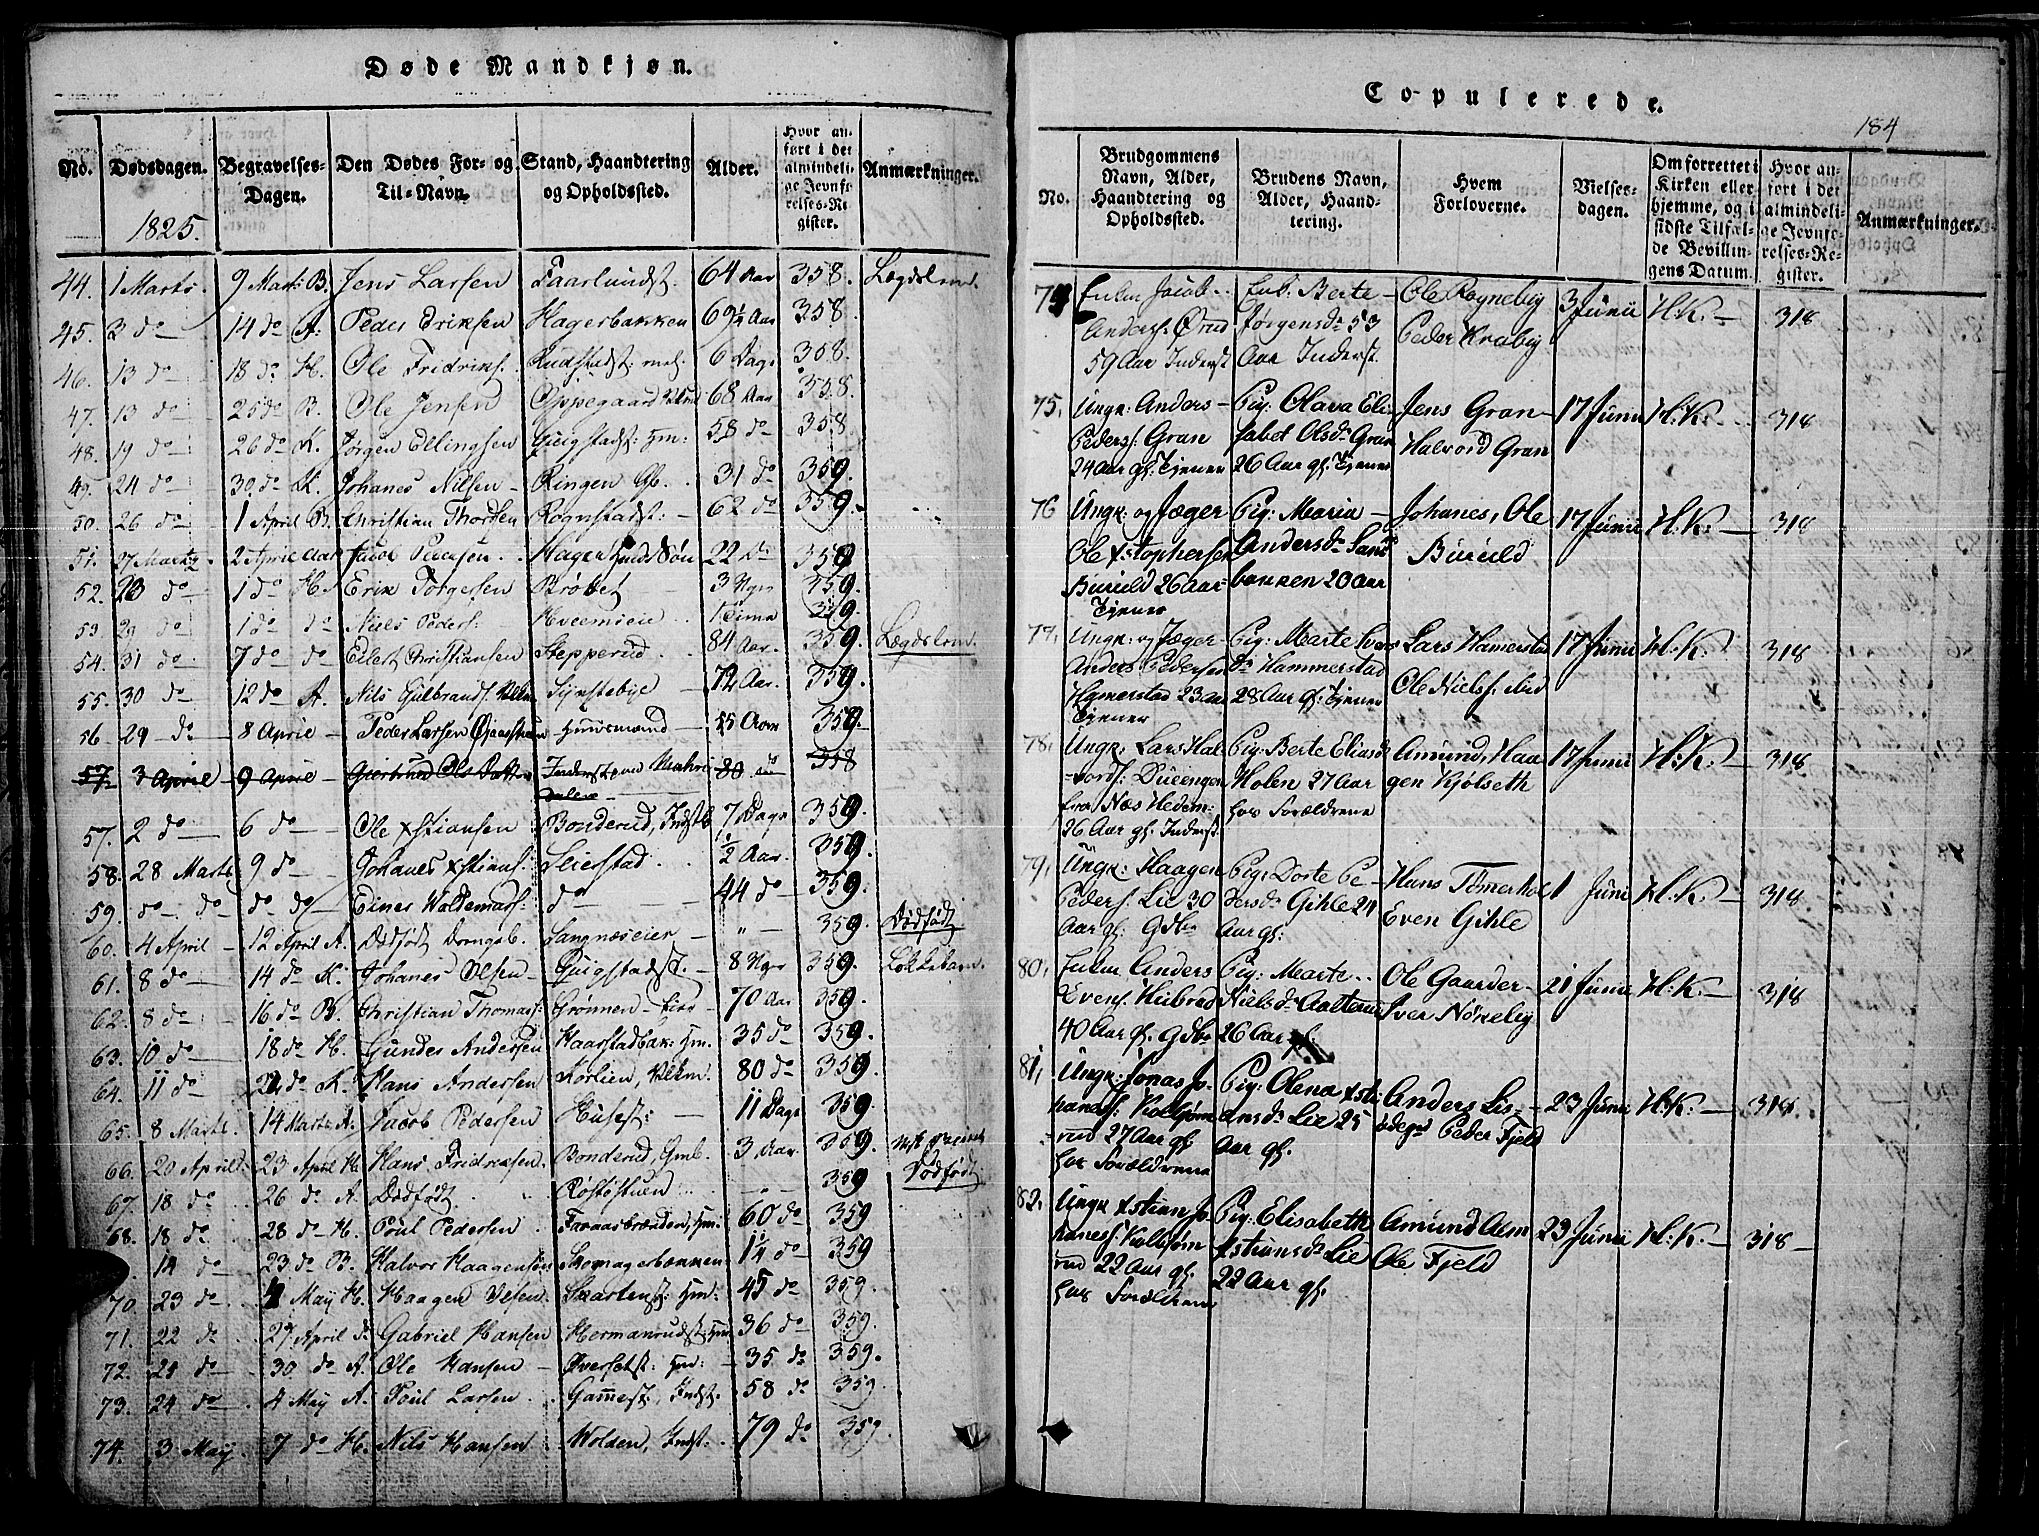 Døde Mandkjøn.
No. Dødsdagen. Begravelses-Dagen. Den Dødes For- og Til-Navn. Stand, Haandtering og Opholdssted. Alder. Hvor anført i det almindelige Jevnførelses-Register. Anmærkninger.
1825.
44. 1 Marts. 9 Marts B. Jens Larsen Faarlundst. 64 Aar 358. Lægdslem.
45. 3 do 14 do A. Peder Eriksen Hagerbakken 69½ Aar 358.
46. 13 do 18 do H. Ole Fridriks. Rudstadst: 6 Dage 358.
47. 13 do 25 do B. Ole Jensen Oppegaard 68 Aar 358.
48. 19 do 26 do K. Jørgen Ellingsen Quigstadst: Hm: 58 do 358
49. 24 do 30 do K. Johanes Nilsen Ringen Gb. 31 do 359.
50. 26 do 1 April B. Christian Thorsen Rognstadst: 62 do 359.
51. 27 Marts 2 April Jacob Pedersen Hagen 22 do 359
52. 23 do 1 do H. Erik Torgersen Brøbet 3 Uger 359.
53. 29 do 1 do do Niels Peders: Hveemseie 1 Time 359.
54. 31 do 7 do do Eilert Christiansen Stepperud 84 Aar. 359. Lægdslem.
55. 30 do 12 do A. Nils Gulbrands. Synstebye 72 Aar. 359.
56 29 do 8 April Peder Larsen Huusmand 55 Aar 359.
57 3 April 9 April 80 do 358
57. 2 do 6 do Ole Xstiansen Bonderud, Indst 7 Dage 359.
58. 28 Marts 9 do Johanes Xstians: Seierstad ½ Aar. 359.
59. do do do do Einer Woldemars: do 44 do 359.
60. 4 April 12 April A. Dødfødt Drengeb. Langnæseier " 359. Dødfødt
61. 8 do 14 do K. Johanes Olsen Quigstadst. 8 Uger 359.
62. 8 do 16 do B. Christian Thomas: Grønnen 70 Aar 359.
63. 10 do 18 do H. Gunder Andersen Haarstadbak: Hm. 35 do 359.
64. 11 do 22 do K. Hans Andersen Korlien, 80 do 359.
65. 8 Marts. 14 Marts A. Jacob Pedersen Husest: 11 Dage 359.
66. 20 April 23 April H. Hans Fridriksen. Bonderud, Gmb. 3 Aar. 359.
67. 18 do 26 do A. Dødfødt Røstøstuen 359 Dødfødt.
68. 18 do 28 do H. Poul Pedersen Hm. 60 do 359
14 do 23 do B. Halvor Haagensen Skomagerbakken 1¼ do 359
70. 23 do 4 May H. Haagen Olsen Hmd: 45 do 359.
71. 22 do 27 April do Gabriel Hansen Hermanrudst: Hm 36 do 359.
72. 24 do 30 do A. Ole Hansen Øversetst: Hm: 35 do 359.
73. 24 do 4 May A. Poul Larsen Gammest:, Indst. 58 do 359.
74. 3 May 7 do H. Nils Hansen Wolden, Indst: 79 do 359.
Copulerede.
184
No. Brudgommens Navn, Alder, Haandtering og Opholdssted. Brudens Navn, Alder, Haandtering. Hvem Forloverne. Vielsesdagen. Om forrettet i Kirken eller hjemme, og i sidste Tilfælde Bevillingens Datum. Hvor anført i det almindelige Jevnførelses-Register. Anmærkninger.
74 Enkm Jacob Enk. Berte Ole Rognebÿ 3 Junii H.K. 318
Anders: Ørud Jørgensd: 53 Peder Krabÿ
59 Aar Inderst Aar Inderst.
75. Ungk: Anders Pig: Olava Eli- Jens Gran 17 Junii H:K: 318
Peders: Gran sabet Olsd: Gran Halvord Gran
24 Aar gl: Tjener 26 Aar gl. Tjener
76 Ungk: og Jæger Pig: Maria Johanes, Ole 17 Junii H.K: 318
Ole Xstophersen Andersd: Sand- Buruld
Buruld 26 Aar bakken 20 Aar
Tjener
77. Ungk: og Jæger Pig: Marte Ivers Lars Hamerstad 17 Junii H:K: 318
Anders Pedersen d: Hammerstad Ole Niels:
Hamerstad 23 Aar 28 Aar gl: Tjener
Tjener
78. Ungk: Lars Hal- Pig: Berte Eliasd Amund, Haa- 17 Junii H:K: 318
vords: Holen 27 Aar gen Kjølseth
fra Næs Hedem: hos Forældrene
26 Aar gl. Inderst.
79. Ungk: Haagen Pig: Dorte Pe- Hans Tømerhol 1 Juni H.K. 318
Peders: Lie 30 dersd: Gihle 24 Even Gihle
Aar gl: Gdbr Aar gl:
80. Enkm Anders Pig: Marte Ole Gaarder 21 Junii H:K. 318
Evens. Nielsd: Iver Nøkkeby
40 Aar gl. Gdbr 26 Aar gl.
81. Ungk: Jonas Jo- Pig: Olena Xsti- Anders Lis- 23 Juni H:K: 318.
hanes: Kolbjørn- ansd: Lie 25 ødegd Peder Fjeld
rud 27 Aar gl Aar gl.
hos Forældrene
82. Ungk Xstian Jo- Pig: Elisabeth Amund Alm 23 Junii H:K. 318
hanes: Kolbjørn- Xstiansd: Lie Ole Fjeld
rud 22 Aar gl. 22 Aar gl.
hos Forældrene